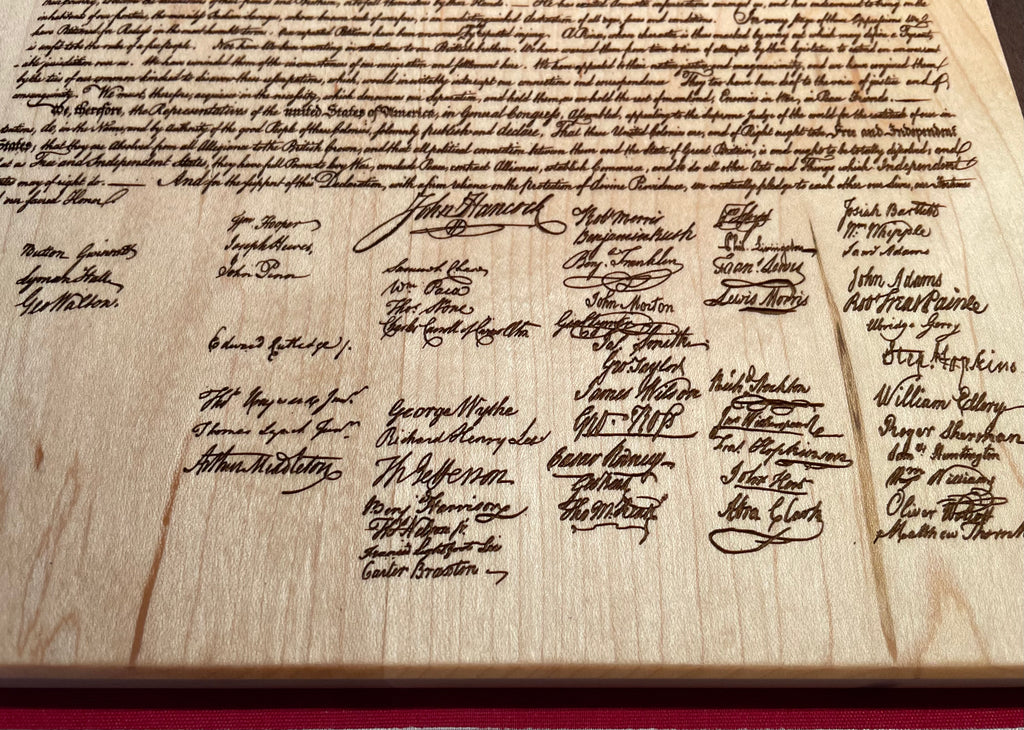 inhabitants of our frontiers, the merciless Indian Savages, whose known rule of warfare, is an undistinguished destruction of all ages, sexes and conditions. In every stage of these Oppressions We
have Petitioned for Redress in the most humble terms: Our repeated Petitions have been answered by repeated injury. A Prince, whose character is thus marked by every act which may define a Tyrant,
is unfit to be the ruler of a free people. Nor have We been wanting in attentions to our British brethren. We have warned them from time to time of attempts by their legislature to extend an
jurisdiction over us. We have reminded them of the circumstances of our emigration and settlement here. We have appealed to their native justice and magnanimity, and we have conjured them
by the ties of our common kindred to disavow these usurpations, which, would inevitably interrupt our connections and correspondence. They too have been deaf to the voice of justice and of
We must, therefore, acquiesce in the necessity, which denounces our Separation, and hold them, as we hold the rest of mankind, Enemies in War, in Peace Friends.
We, therefore, the Representatives of the united States of America, in General Congress, Assembled, appealing to the Supreme Judge of the world for the rectitude of our in
do, in the Name, and by authority of the good People of these Colonies, solemnly publish and declare, That these United Colonies are, and of Right ought to be Free and Independent
States; that they are Absolved from all Allegiance to the British Crown, and that all political connection between them and the State of Great Britain, is and ought to be totally dissolved; and
as Free and Independent States, they have full Power to levy War, conclude Peace, contract Alliances, establish Commerce, and to do all other Acts and Things which Independent
may of right do. And for the support of this Declaration, with a firm reliance on the protection of divine Providence, we mutually pledge to each other our Lives, our Fortunes
our sacred Honor.
John Hancock
Button Gwinnett
Lyman Hall
Geo Walton.
Wm Hooper
Joseph Hewes,
John Penn
Edward Rutledge /.
Thos Heyward Junr.
Thomas Lynch Junr.
Arthur Middleton
Samuel Chase
Wm Paca
Thos. Stone
Charles Carroll of Carrollton
George Wythe
Richard Henry Lee
Th Jefferson
Benj Harrison
Thos Nelson jr.
Francis Lightfoot Lee
Carter Braxton
Robt Morris
Benjamin Rush
Benj. Franklin
John Morton
Geo Clymer
Jas. Smith
Geo. Taylor
James Wilson
Geo. Ross
Caesar Rodney
Geo Read
Tho M. Kean
Phil. Livingston
Frans. Lewis
Lewis Morris
Richd. Stockton
Jno Witherspoon
Fras. Hopkinson
John Hart
Abra Clark
Josiah Bartlett
Wm. Whipple
Saml Adams
John Adams
Robt Treat Paine
Elbridge Gerry
Step. Hopkins
William Ellery
Roger Sherman
Saml Huntington
Wm Williams
Oliver Wolcott
Matthew Thornt